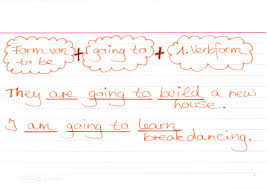 Form von to be + going to + 1. Verbform
They are going to build a new
house.
I am going to learn
breakdancing.